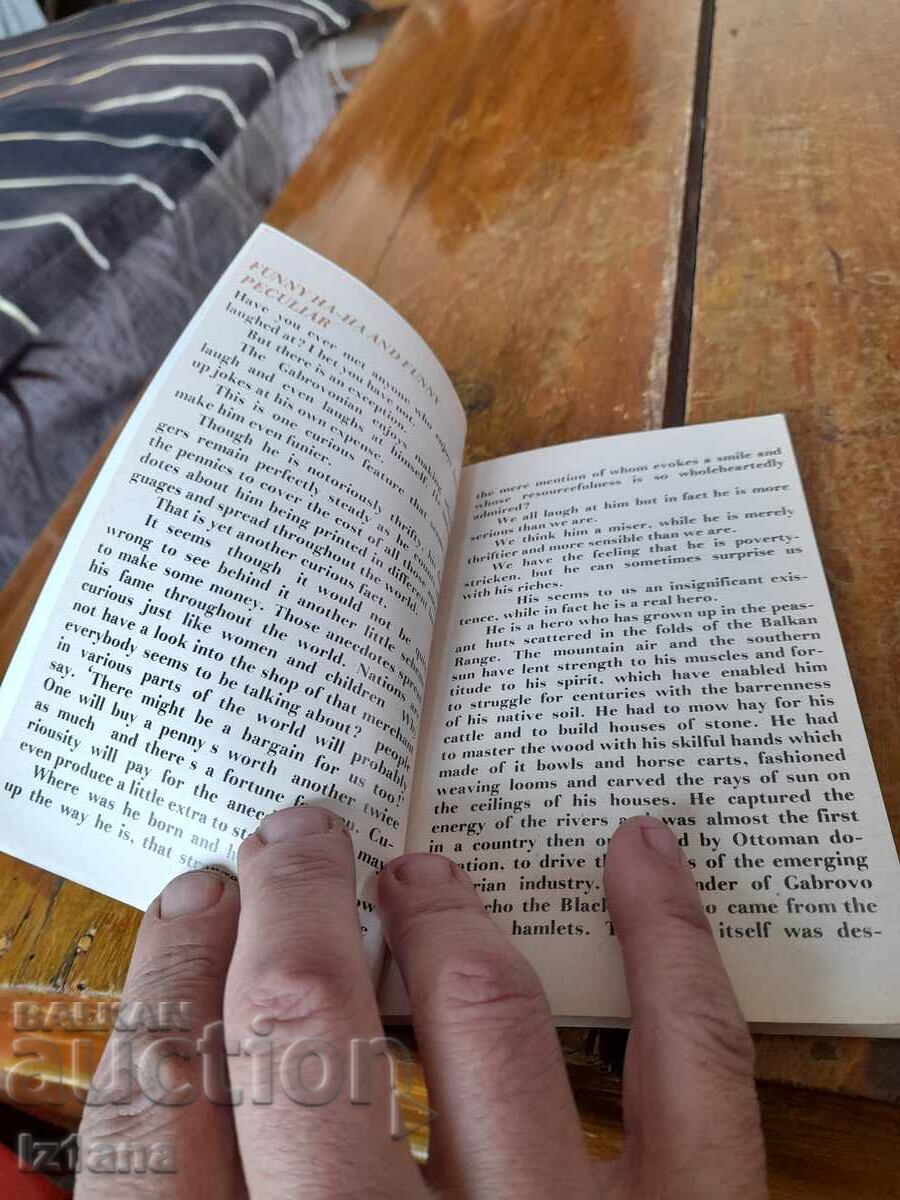 FUNNY HA-HA AND FUNNY
PECULIAR
Have you ever met anyone who enjoys
laughed at? I bet you have not.
But there is an exception.
The Gabrovonian enjoys making
laugh and even laughs at himself. He
up jokes at his own expense.
This is one curious feature that
make him even funier.
Though he is notoriously thrifty, his
gers remain perfectly steady as he counts
the pennies to cover the cost of all those
dotes about him being printed in different
guages and spread throughout the world.
That is yet another curious fact.
It seems though, it would not be quite
wrong to see behind it another little scheme
to make some money. Those anecdotes spread
his fame throughout the world. Nations are
curious just like women and children. Why
not have a look into the shop of that merchant
everybody seems to be talking about? people
in various parts of the world will probably
say. There might be a bargain for us too!
One will buy a penny's worth another twice
as much and there's a fortune
riosity will pay for the Cu-
even produce a little extra to may
Where was he born and
up the way he is, that
the mere mention of whom evokes a smile and
whose resourcefulness is so wholeheartedly
admired?
We all laugh at him but in fact he is more
serious than we are.
We think him a miser, while he is merely
thriftier and more sensible than we are.
We have the feeling that he is poverty-
stricken, but he can sometimes surprise us
with his riches.
His seems to us an insignificant exis-
tence, while in fact he is a real hero.
He is a hero who has grown up in the peas-
ant huts scattered in the folds of the Balkan
Range. The mountain air and the southern
sun have lent strength to his muscles and for-
titude to his spirit, which have enabled him
to struggle for centuries with the barrenness
of his native soil. He had to mow hay for his
cattle and to build houses of stone. He had
to master the wood with his skilful hands which
made of it bowls and horse carts, fashioned
weaving looms and carved the rays of sun on
the ceilings of his houses. He captured the
energy of the rivers was almost the first
in a country then by Ottoman do-
to drive of the emerging
industry. of Gabrovo
the Black came from the
hamlets. itself was des-
BALKAN
auction
iz1ana